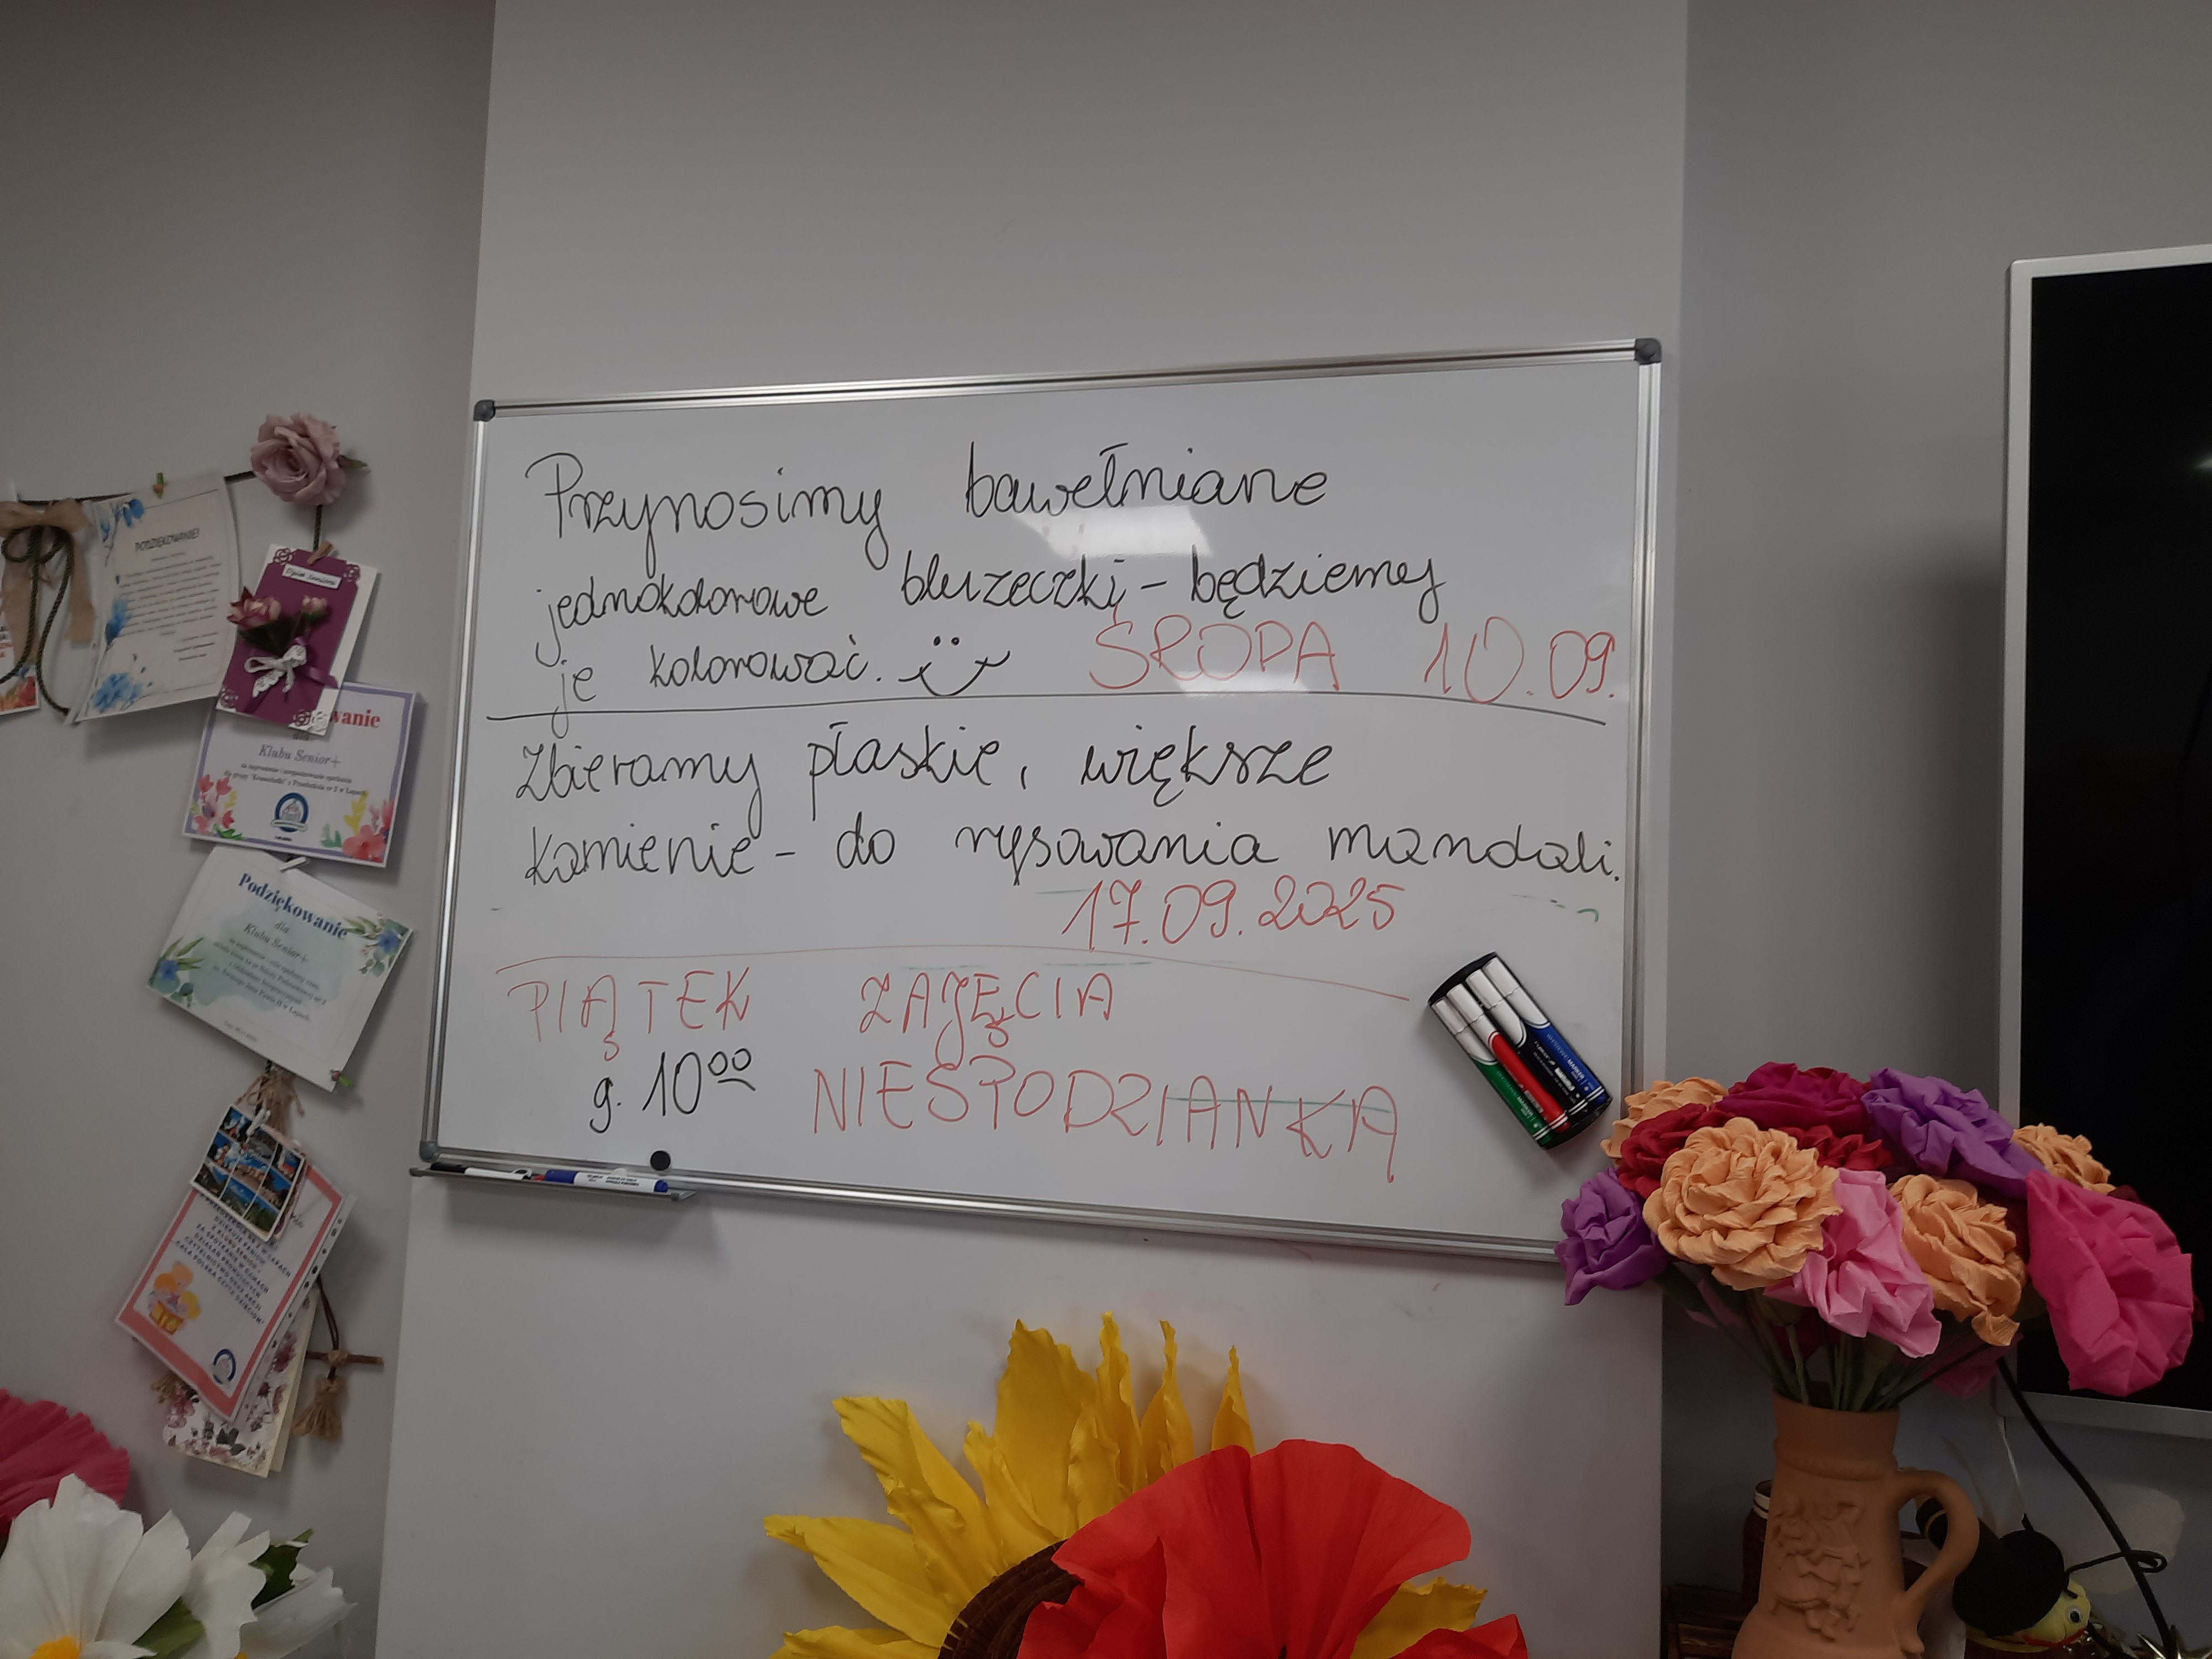 Przynosimy bawełniane
jednokolorowe bluzeczki - będziemy
je kolorować.
ŚRODA 10.09.
Zbieramy płaskie, większe
kamienie - do rysowania mandali.
17.09.2025
PIĄTEK ZAJĘCIA
g. 10⁰⁰ NIESPODZIANKA
PODZIĘKOWANIE!
Klubu Senior+
Podziękowanie
dla
Klubu Senior+